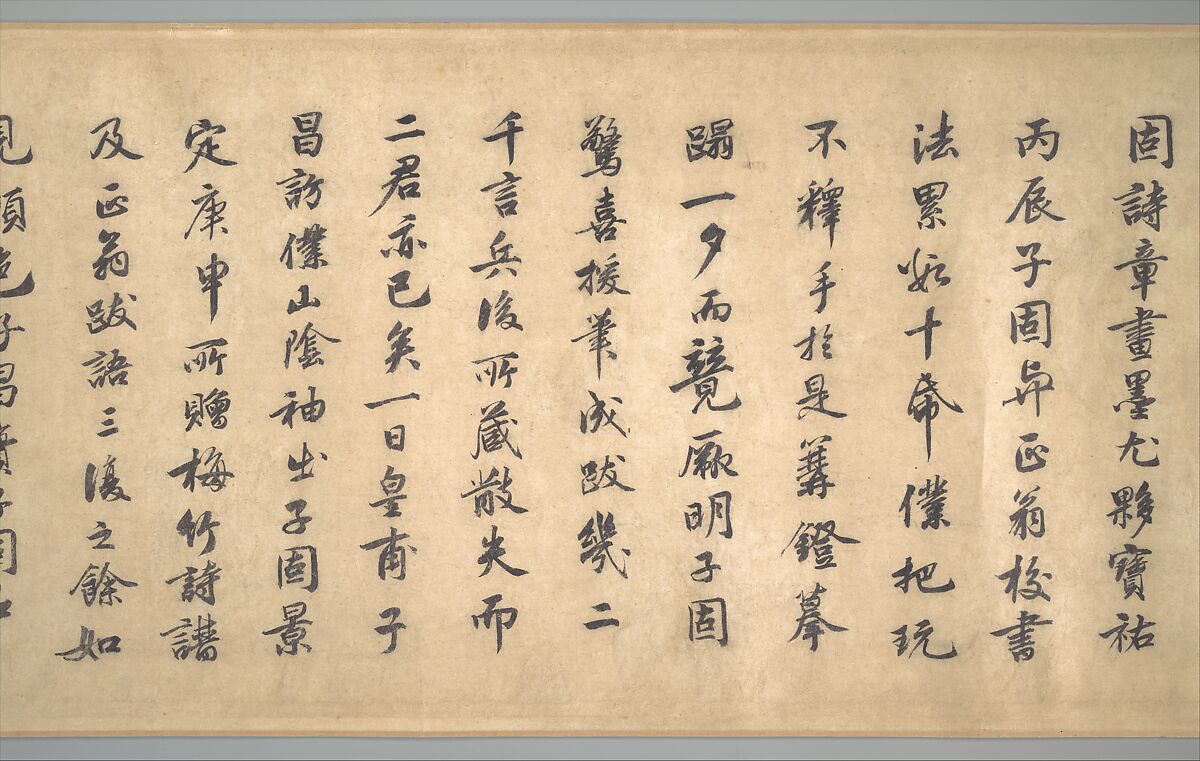 固詩章畫墨尤夥寶祐
丙辰子固與正翁校書
法累數十帋僕把玩
不釋手於是篝鐙摹
蹋一夕而竟厥明子固
驚喜援筆成跋幾二
千言兵後所藏散失而
二君亦已矣一日皇甫子
昌訪僕山陰袖出子固景
定庚申所贈梅竹詩譜
及正翁跋語三復之餘如